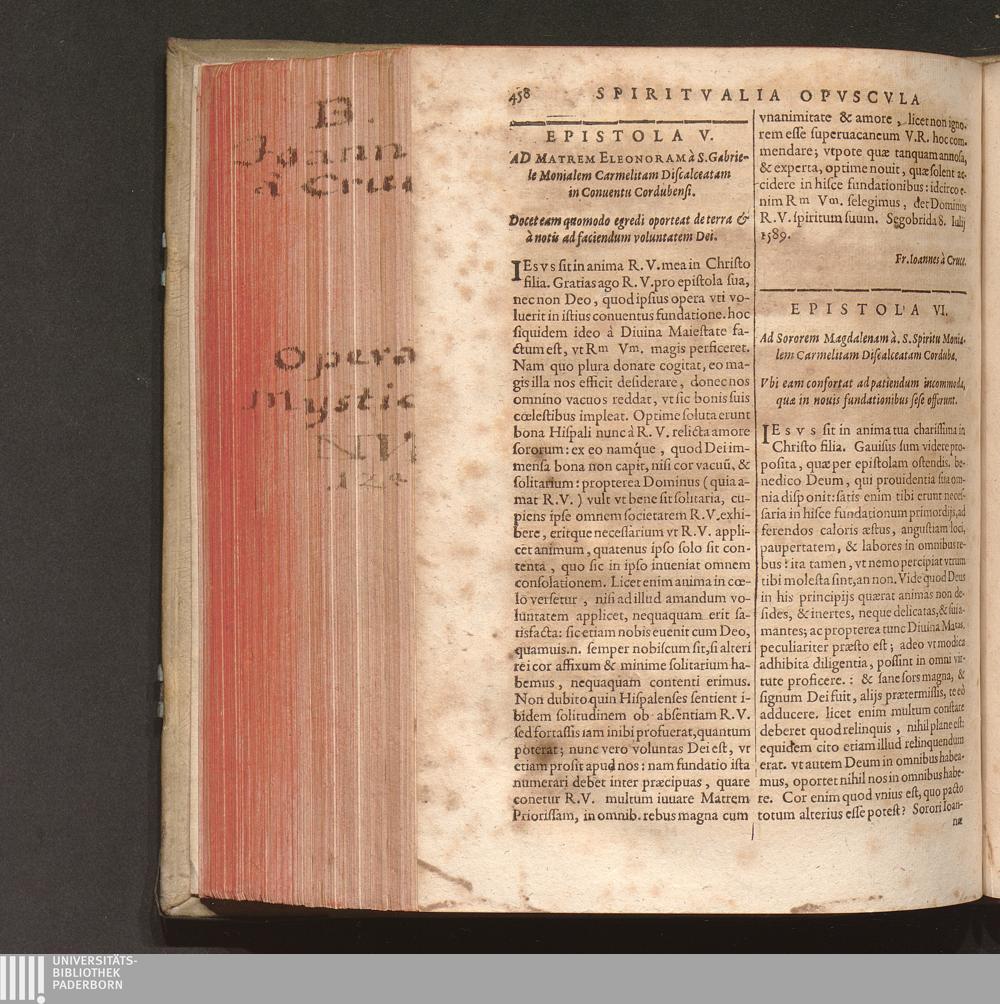 B.
Joann
à Cruc
Opera
Mystic
458 SPIRITVALIA OPVSCVLA
EPISTOLA V.
AD MATREM ELEONORAM à S. Gabrie-
le Monialem Carmelitam Discalceatam
in Conuentu Cordubensi.
Docet eam quomodo egredi oporteat de terra &
à notis ad faciendum voluntatem Dei.
IESVS sit in anima R. V. mea in Christo
filia. Gratias ago R. V. pro epistola sua,
nec non Deo, quod ipsius opera vti vo-
luerit in istius conuentus fundatione. hoc
siquidem ideo à Diuina Maiestate fa-
ctum est, vt Rm Vm. magis perficeret.
Nam quo plura donate cogitat, eo ma-
gis illa nos efficit desiderare, donec nos
omnino vacuos reddat, vt sic bonis suis
cœlestibus impleat. Optime soluta erunt
bona Hispali nunc à R. V. relicta amore
sororum: ex eo namque, quod Dei im-
mensa bona non capit, nisi cor vacuũ, &
solitarium: propterea Dominus (quia a-
mat R.V.) vult vt bene sit solitaria, cu-
piens ipse omnem societatem R.V. exhi-
bere, eritque necessarium vt R.V. appli-
cet animum, quatenus ipso solo sit con-
tenta, quo sic in ipso inueniat omnem
consolationem. Licet enim anima in cœ-
lo versetur, nisi ad illud amandum vo-
luntatem applicet, nequaquam erit sa-
tisfacta: sic etiam nobis euenit cum Deo,
quamuis.n. semper nobiscum sit, si alteri
rei cor affixum & minime solitarium ha-
bemus, nequaquam contenti erimus.
Non dubito quin Hispalenses sentient i-
bidem solitudinem ob absentiam R.V.
sed fortassis iam inibi profuerat, quantum
poterat; nunc vero voluntas Dei est, vt
etiam prosit apud nos: nam fundatio ista
numerari debet inter præcipuas, quare
conetur R.V. multum iuuare Matrem
Priorissam, in omnib. rebus magna cum
vnanimitate & amore, licet non igno-
rem esse superuacaneum V.R. hoc com-
mendare; vtpote quæ tanquam annosa,
& experta, optime nouit, quæ solent ac-
cidere in hisce fundationibus: idcirco e-
nim Rm Vm. selegimus, det Dominus
R. V. spiritum suum. Segobrida 8. Iulij
1589.
Fr. Ioannes à Cruce.
EPISTOLA VI.
Ad Sororem Magdalenam à. S. Spiritu Monia-
lem Carmelitam Discalceatam Corduba.
Vbi eam confortat ad patiendum incommoda,
quæ in nouis fundationibus sese offerunt.
IESVS sit in anima tua charissima in
Christo filia. Gauisus sum videre pro-
posita, quæ per epistolam ostendis. be-
nedico Deum, qui prouidentia sua om-
nia disponit: satis enim tibi erunt neces-
saria in hisce fundationum primordijs, ad
ferendos caloris æstus, angustiam loci,
paupertatem, & labores in omnibus re-
bus: ita tamen, vt nemo percipiat vtrum
tibi molesta sint, an non. Vide quod Deus
in his principijs quærat animas non de-
sides, & inertes, neque delicatas, & sui a-
mantes; ac propterea tunc Diuina Matas.
peculiariter præsto est; adeo vt modica
adhibita diligentia, possint in omni vir-
tute proficere.: & sane sors magna, &
signum Dei fuit, alijs prætermissis, te eò
adducere. licet enim multum constare
deberet quod relinquis, nihil plane est:
equidem cito etiam illud relinquendum
erat. vt autem Deum in omnibus habea-
mus, oportet nihil nos in omnibus habe-
re. Cor enim quod vnius est, quo pacto
totum alterius esse potest? Sorori Ioan-
næ
UNIVERSITÄTS-
BIBLIOTHEK
PADERBORN